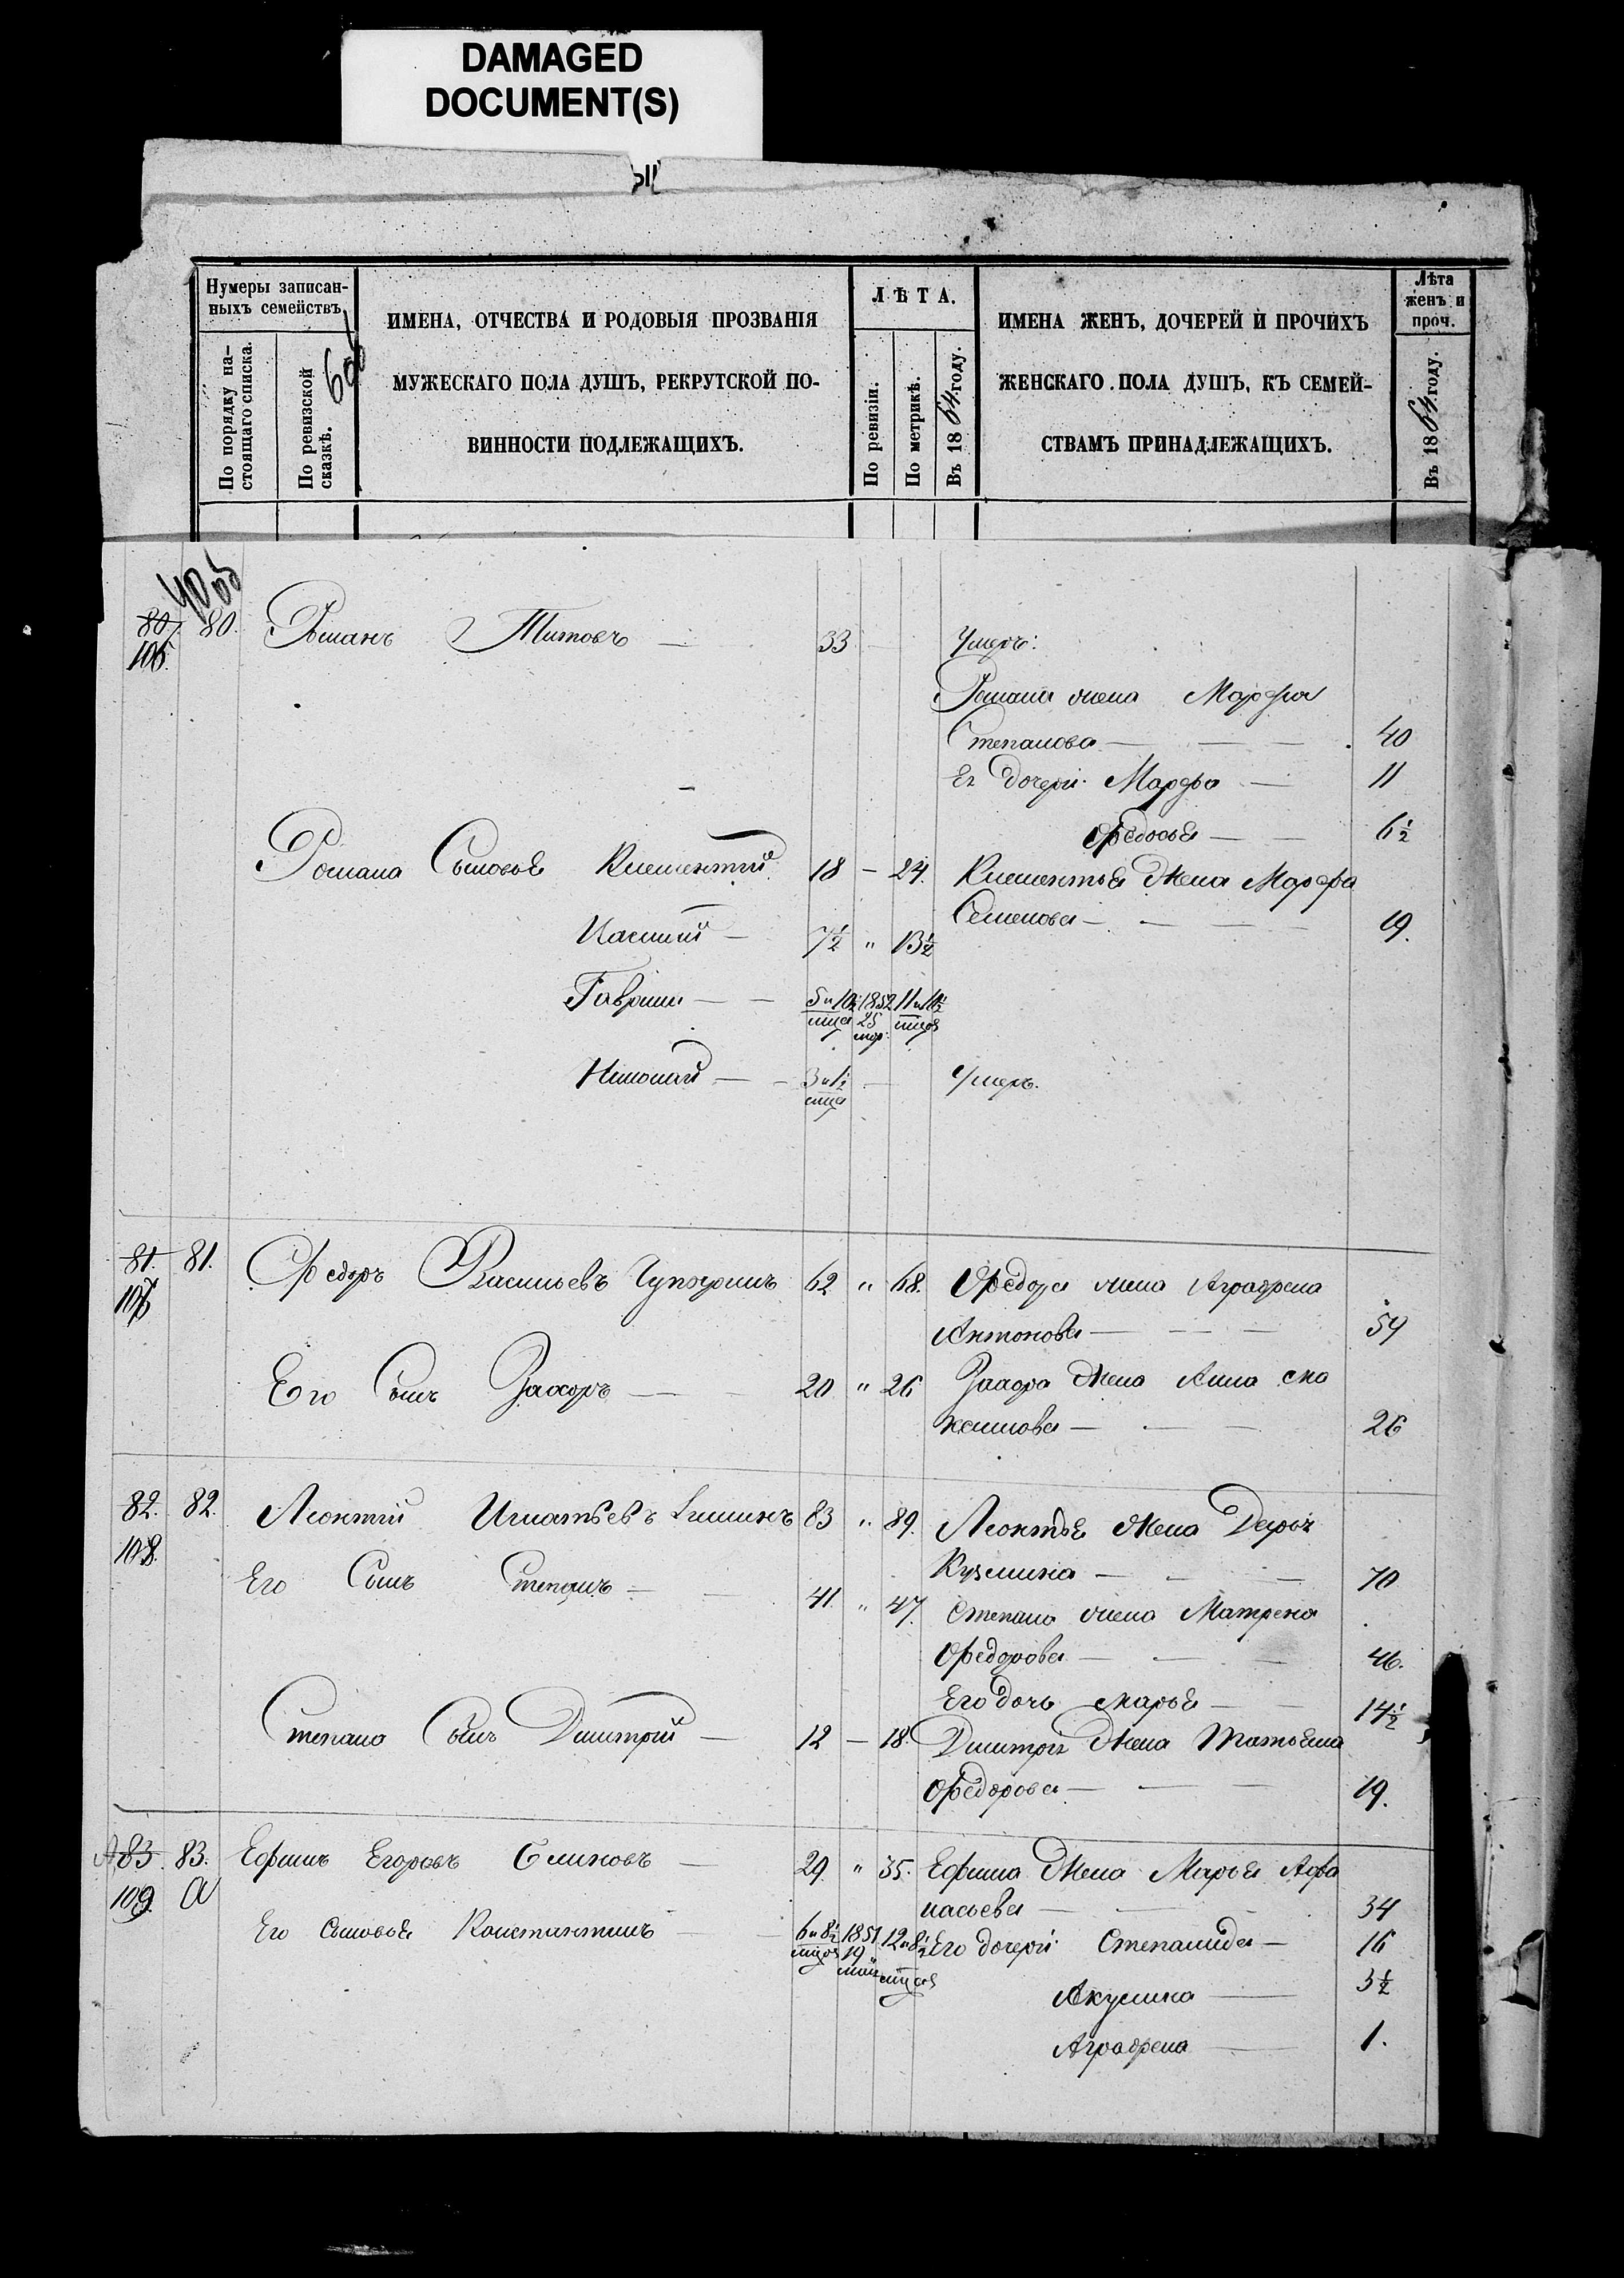 DAMAGED
DOCUMENT(S)
Нумеры записан-
ныхъ семействъ
По порядку на-
стоящаго списка.
По ревизской
сказкѣ.
ИМЕНА, ОТЧЕСТВА И РОДОВЫЯ ПРОЗВАНІЯ
МУЖЕСКАГО ПОЛА ДУШЪ, РЕКРУТСКОЙ ПО-
ВИННОСТИ ПОДЛЕЖАЩИХЪ.
ЛѢТА.
По ревизіи.
По метрикѣ.
Въ 1864 году.
ИМЕНА ЖЕНЪ, ДОЧЕРЕЙ И ПРОЧИХЪ
ЖЕНСКАГО ПОЛА ДУШЪ, КЪ СЕМЕЙ-
СТВАМЪ ПРИНАДЛЕЖАЩИХЪ.
Лѣта
женъ и
проч.
Въ 1864 году.
40 об
80. 80. Романъ Титовъ — 33 — Умеръ:
106.
Романа жена Марфа
Степанова — 40
Ег дочери: Марфа — 11
Федосья — 6½
Романа Сыновья Клементий 18 — 24. Клементья Жена Марфа
Семенова — 19.
7½ " 13½
Гаврила — 5 и 10½ мца 1852 25 мар: 11 и 10½ мцов
Николай — 3 и ½ мца — Умеръ.
81. 81. Федоръ Васильевъ 62 " 68. Федора жена Аграфена
107
Антонова — 59
Его Сынъ Захаръ — 20 " 26 Захара Жена Анна
26
82. 82. Леонтий Игнатьевъ 83 " 89. Леонтья Жена
108.
Кузмина — 70
Его Сынъ Степанъ — 41 " 47. Степана жена Матрена
Федорова — 46.
Его дочь Марья — 14½
Степана Сынъ Дмитрий — 12 — 18. Дмитрия Жена Татьяна
Федорова — 19.
83. 83. Ефимъ Егоровъ — 29. " 35. Ефима Жена Марья Афа
109. а
насьева — 34
Его Сыновья Константинъ — 6 и 8½ мцов 1851 19 маи 12 и 8½ мцов Его дочери: Степанида — 16
Акулина — 3½
Аграфена — 1.